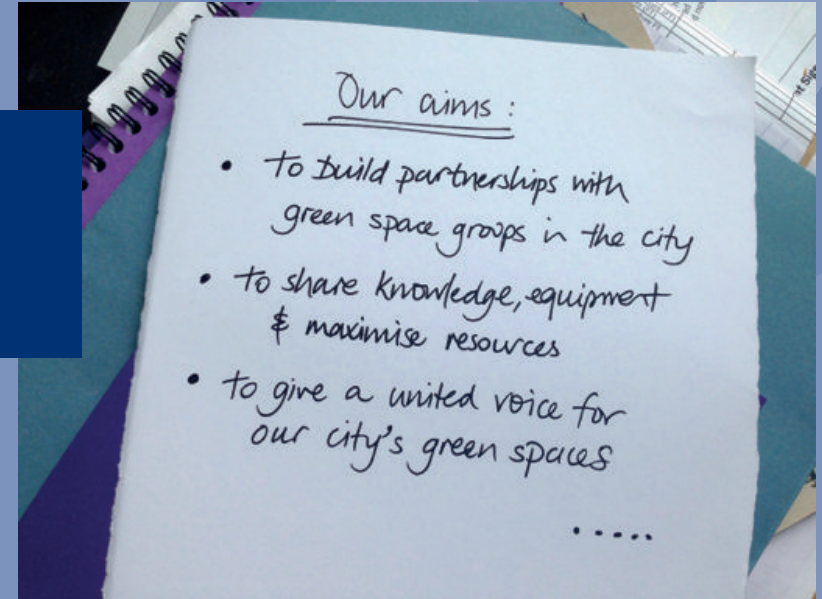 Our aims :
• to build partnerships with
green space groups in the city
• to share knowledge, equipment
& maximise resources
• to give a united voice for
our city's green spaces
.....